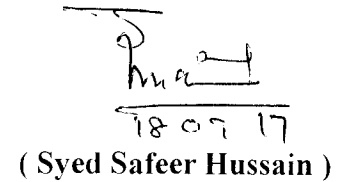 18 09 17
( Syed Safeer Hussain )